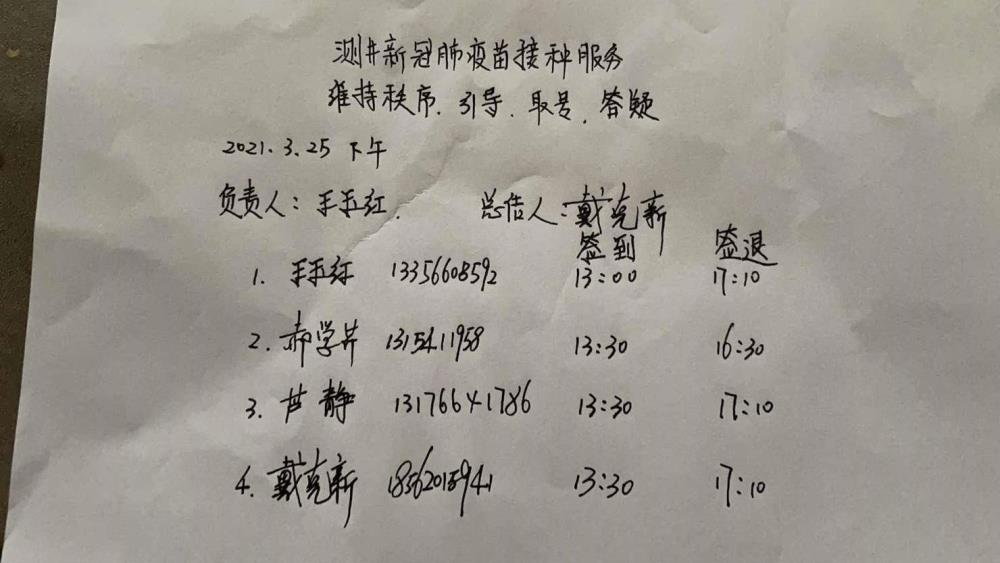 测井新冠肺疫苗接种服务
维持秩序.引导.取号.答疑
2021.3.25 下午
负责人：王玉红. 总信人：戴克新
签到 签退
1. 王玉红 13356608592 13:00 17:10
2. 郝学芹 1315411958 13:30 16:30
3. 芦静 13176641786 13:30 17:10
4. 戴克新 18562015941 13:30 17:10